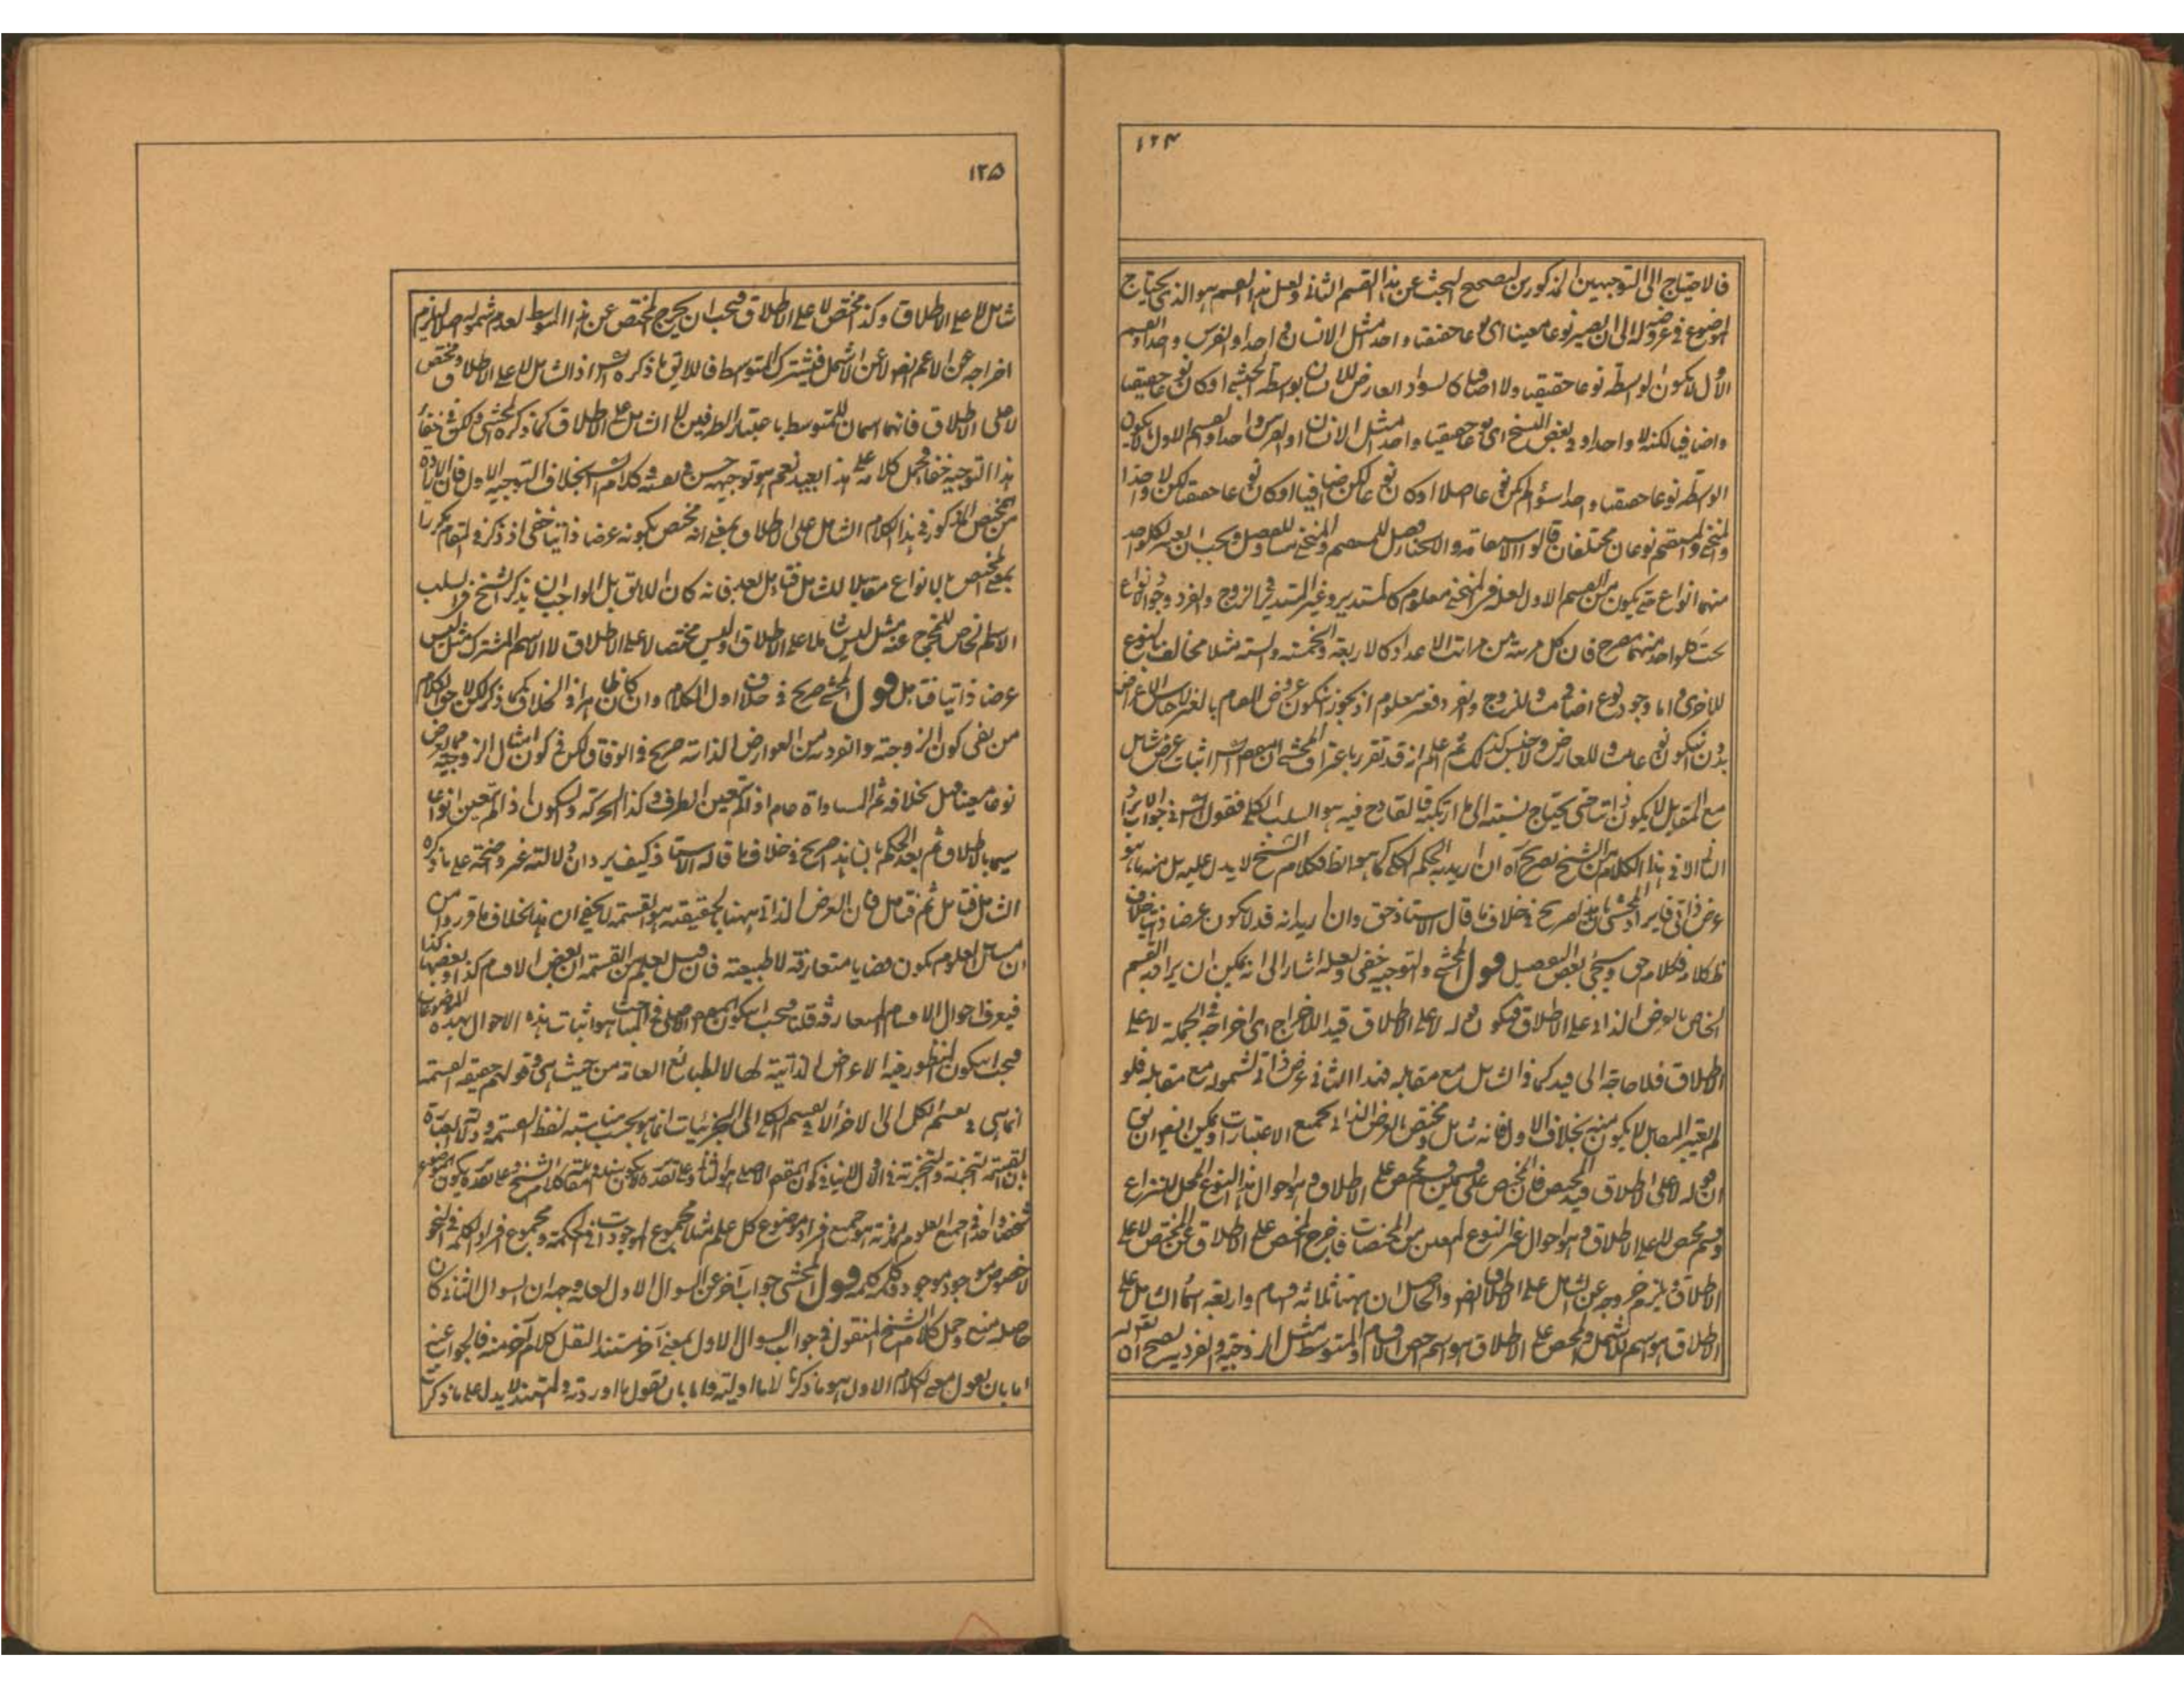 ١٢٤
فالاحتياج الى التوجيهين المذكورين لتصحيح البحث عن هذا القسم الثانى ولعل هذا القسم هو الذى يحتاج
الموضوع فى عروضه له الى ان يصير نوعا معينا اى نوعا حقيقيا واحدا مثل الانسان واحدا والفرس واحدا والقسم
الاول لا يكون الواسطة نوعا حقيقيا ولا اضافيا كالسواد العارض للانسان بواسطة الجشى او كان نوعا حقيقيا
واضافيا لكنه لا واحدا وفى بعض النسخ اى نوعا حقيقيا واحدا مثل الانسان او الفرس واحدا والقسم الاول لا يكون
الواسطة نوعا حقيقيا واحدا سواء لم يكن نوعا اصلا او كان نوعا لكن اضافيا او كان نوعا حقيقيا لكن لا واحدا
والمنحنى والمستقيم نوعان مختلفان قالوا الاستقامة والانحناء فصل للمستقيم والمنحنى وللفصل ويجب ان يعتبر لكل واحد
منهما انواع حتى يكون من القسم الاول لعله فى المنحنى معلوم كالمستدير وغير المستدير وفى الزوج والفرد وجود انواع
تحت كل واحد منهما مصرح فان كل مرتبة من مراتب الاعداد كالاربعة والخمسة والستة مثلا مخالف بالنوع
للاخرى واما وجود نوع اضافى للزوج والفرد فغير معلوم اذ يجوز ان يكون عروض العام بالغير لاحاس الاعراض
بدون ان يكون نوع عامت للعارض ولا جنس كذلك ثم اعلم انه قد تقرر باعتراف المحشى ان اثبات عرض شامل
مع المقابل لا يكون ذاتيا حتى يحتاج نسبته الى ما ارتكبه فالقادح فيه هو السلب الكلى فنقول فى جواب الايراد
الثانى الا فى هذا الكلام من الشيخ تصريح آه ان اريد به الحكم الكلى كما هو الظ فكلام الشيخ لا يدل عليه بل منه ما هو
عرض ذاتى فايراد المحشى بان هذا صريح فى خلاف ما قال الاستاذ حق وان اريد انه قد لا يكون عرضا ذاتيا خلاف
ظ كلامه فكلامه حق وسيجئ بعض التفصيل قول المحشى والتوجيه خفى ولعله اشار الى انه يمكن ان يراد به القسم
الخاص بالعرض الذاتى على الاطلاق فيكون قوله لا على الاطلاق قيدا للاخراج اى اخراجه فى الجملة لا على
الاطلاق فلا حاجة الى قيد كما فى الشامل مع مقابله فهذا الثانى عرض ذاتى لشموله مع مقابله فلو
لم يعتبر المقابل لا يكون منه بخلاف الاول فانه شامل ومختص بالعرض الذاتى بجميع الاعتبارات ويمكن ايضا ان يق
ان قوله لا على الاطلاق قيد المختص فان المختص على قسمين قسم مختص على الاطلاق وهو احوال هذا النوع المحل للنزاع
وقسم مختص لا على الاطلاق وهو احوال غير النوع المعين من المختصات فاخرج المختص على الاطلاق عن المختص لا على
الاطلاق فيلزم خروجه عن الشامل على الاطلاق ايضا والحاصل ان ههنا ثلاثة اقسام واربعة اسماء الشامل على
الاطلاق هو اسم للاشمل والمختص على الاطلاق هو اسم اخص الاقسام والمتوسط مثل الزوجية والفردية يصح ان يقول انه
١٢٥
شامل لا على الاطلاق وكذا مختص لا على الاطلاق فيجب ان يخرج المختص عن هذا المتوسط لعدم شموله اصلا فيلزم
اخراجه عن الاعم ايضا ولا عن الاشمل فيشترك المتوسط فاللايق ما ذكره اذ الشامل لا على الاطلاق ومختص
لا على الاطلاق فانهما اسمان للمتوسط باعتبار الطرفين لا الشامل على الاطلاق كما ذكره المحشى ولكن فى خفاء
هذا التوجيه خفاء وحمل كلامه على هذا بعيد نعم هو توجيه حسن فى نفسه وكلام الشيخ بخلاف التوجيه الاول فان الارادة
من المختص المذكور فى هذا الكلام الشامل على الاطلاق بمعنى انه مختص بكونه عرضا ذاتيا خفى اذ ذكر فى المقام مكررا
بمعنى المختص بالانواع مقابلا للشامل فتامل لعله فانه كان اللائق بل الواجب ان يذكر الشيخ فى السلب
الاسم الخاص للمخرج عنه مثل ليس شاملا على الاطلاق وليس مختصا لا على الاطلاق لا الاسم المشترك مثل ليس
عرضا ذاتيا فتامل قول المحشى صريح فى خلاف اول الكلام وان كان ظاهرا فى الخلاف كما ذكر لكن لاحق الكلام
من نفى كون الزوجية والفردية من العوارض الذاتية صريح فى الوفاق ولكن فى كون امثال الزوجية مما يعرض
نوعا معينا فهل بخلافه ثم المساواة عام اذ لم يعين الطرف وكذا الحركة والسكون اذ لم يتعين انواعا
سيما بالاطلاق ثم بعد الحكم بان هذا صريح فى خلاف ما قاله الاستاذ كيف يرد ان دلالته غير واضحة على ما ذكره
الشامل فتامل ثم فتامل فان العرض الذاتى ههنا بالحقيقة هو القسمة لا يخفى ان هذا بخلاف ما قرروا من
ان مسائل العلوم يكون قضايا متعارفة لا طبيعية فان قيل لعله من القسمة ان بعض الاقسام كذا وبعضها كذا
فيعرف احوال الاقسام المتعارفة قلنا فيجب ان يكون المهم الاصلى فى المباحث هو اثبات هذه الاحوال بهذه الموضوعات
فيجب ان يكون المنظور فيه الاعراض الذاتية لها لا الطبائع العامة من حيث هى وقولهم حقيقة القسمة
انما هى تقسيم الكل الى الاجزاء لا تقسيم الكلى الى الجزئيات انما هو بحسب مناسبة لفظ القسمة ودلالة العبارة
بان القسمة التجزية والتجزية فى الاول لا الثانى فيكون المقسم الاصلى هو الثانى وعلى تقديره يكون كلام الشيخ على تقديره يكون الموضوع
شخصا واحدا فى جميع العلوم لانه هو جميع افراد موضوع كل علم مثلا مجموع الموجودات فى الحكمة ومجموع افراد الكلمة فى النحو
لا خصوص موجود موجود وكلمة كلمة قول المحشى جواب آخر عن السوال الاول لعله وجه ان السوال الثانى كان
حاصله منع وحمل كلام الشيخ المنقول فى جواب السوال الاول بمعنى آخر مستندا لنقل كلام آخر منه فالجواب عنه
اما بان يقول معنى الكلام الاول هو ما ذكرنا لا ما اوليته واما بان تقول ما اوردته والمستند لا يدل على ما ذكرت